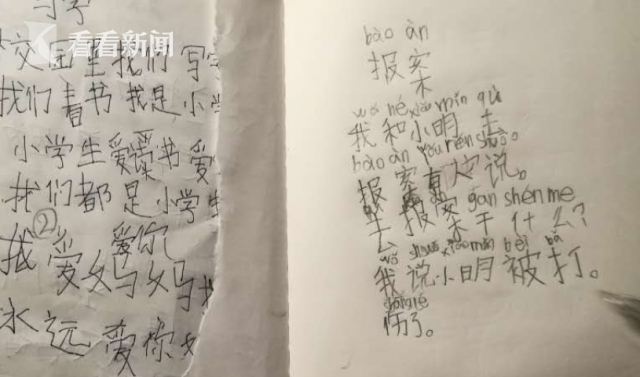 看看新闻
习字
校园里我们写字
我们看书我是小学
小学生爱读书爱
我们都是小学生
②
我爱 爱你
妈妈
永远爱你
bào àn
报案
wǒ hé xiǎo mín qù
我和小明去
bào àn yǒu rén shuō
报案有人说。
àn gàn shén me
去报案干什么？
wǒ shuō xiǎo mín bèi dǎ
我说小明被打。
伤了。